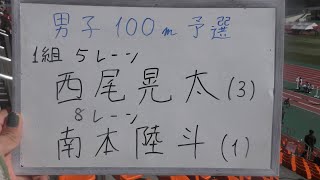 男子100m予選
1組 5レーン
西尾晃太(3)
8レーン
南本陸斗(1)